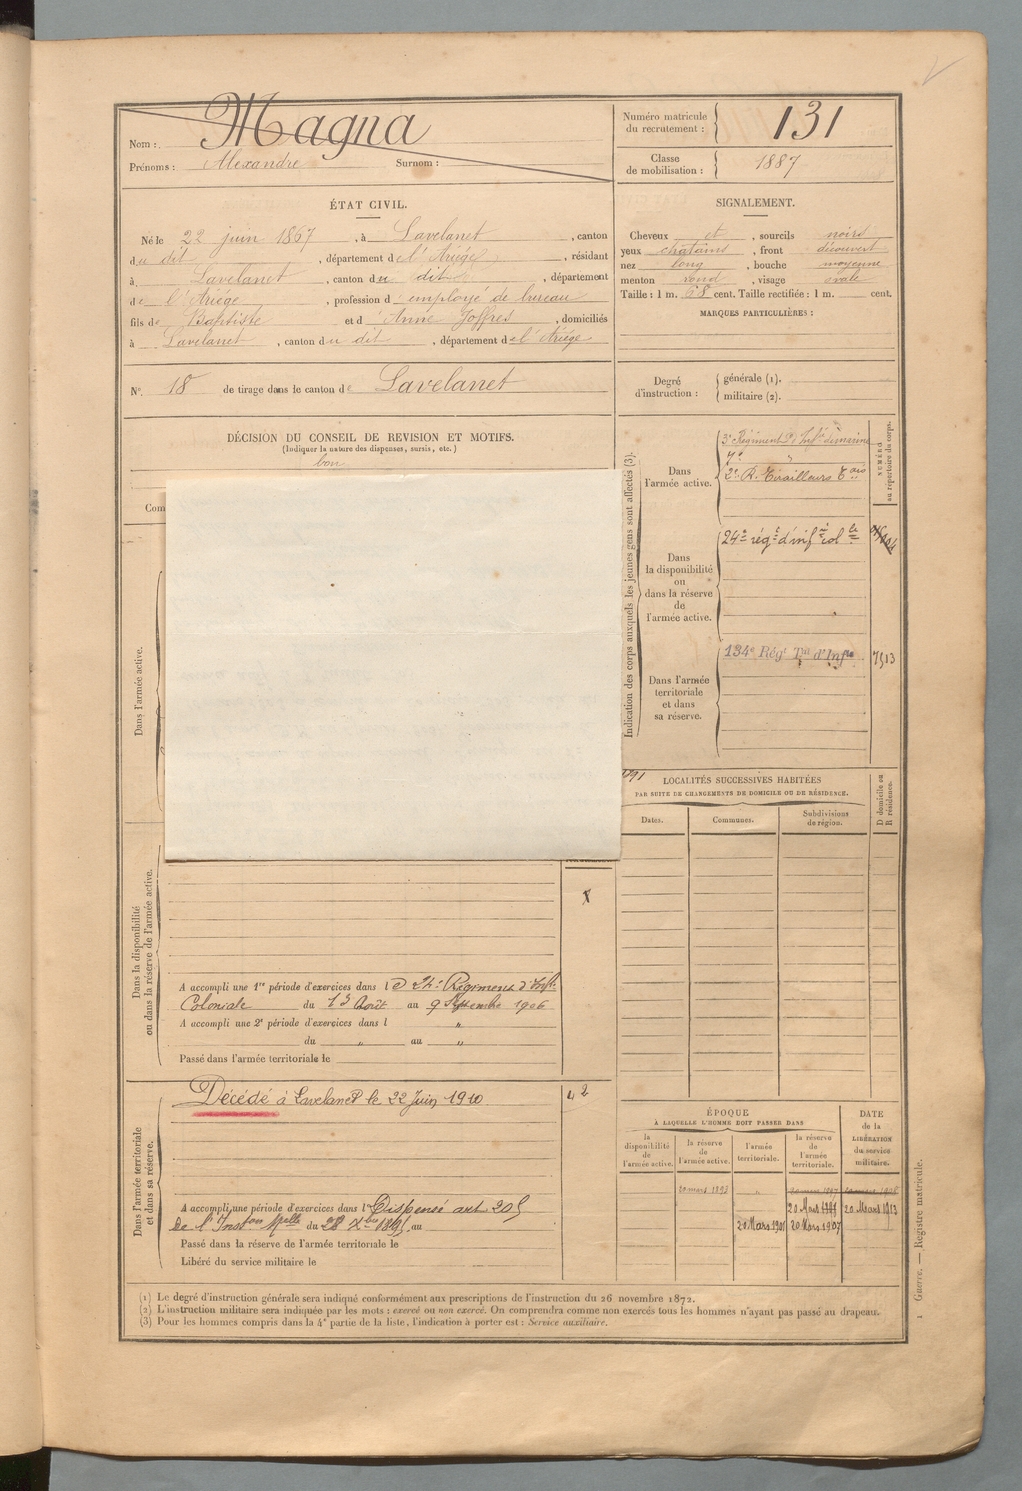 Nom : Magna
Prénoms : Alexandre Surnom :
Numéro matricule
du recrutement : 131
Classe
de mobilisation : 1887
ÉTAT CIVIL.
Né le 22 juin 1867, à Lavelanet, canton
du dit, département de l'Ariége, résidant
à Lavelanet, canton du dit, département
de l'Ariége, profession d'employé de bureau
fils de Baptiste et d'Anne Joffres, domiciliés
à Lavelanet, canton du dit, département de l'Ariége
N° 18 de tirage dans le canton de Lavelanet
DÉCISION DU CONSEIL DE REVISION ET MOTIFS.
(Indiquer la nature des dispenses, sursis, etc.)
bon
Com
SIGNALEMENT.
Cheveux et, sourcils noirs
yeux chatains, front découvert
nez long, bouche moyenne
menton rond, visage ovale
Taille : 1 m. 68 cent. Taille rectifiée : 1 m. cent.
MARQUES PARTICULIÈRES :
Degré
d'instruction :
générale (1).
militaire (2).
Indication des corps auxquels les jeunes gens sont affectés (3).
NUMÉRO
au répertoire du corps.
Dans
l'armée active.
3e Régiment d'Infie de marine
7e "
2e R. Tirailleurs
Dans
la disponibilité
ou
dans la réserve
de
l'armée active.
24e régt d'infie colle
Dans l'armée
territoriale
et dans
sa réserve.
134e Régt Tal d'Infie
7513
LOCALITÉS SUCCESSIVES HABITÉES
PAR SUITE DE CHANGEMENTS DE DOMICILE OU DE RÉSIDENCE.
Dates.
Communes.
Subdivisions
de région.
D domicile ou
R résidence.
Dans l'armée active.
Dans la disponibilité
ou dans la réserve de l'armée active.
A accompli une 1re période d'exercices dans le 24e Régiment d'Infie
Coloniale du 13 Août au 9 Septembre 1906
A accompli une 2e période d'exercices dans l "
du " au "
Passé dans l'armée territoriale le
Dans l'armée territoriale
et dans sa réserve.
Décédé à Lavelanet le 22 Juin 1910
A accompli une période d'exercices dans l Dispensé art 205
de l'Inston Mielle du 28 Xbre 1895 au
Passé dans la réserve de l'armée territoriale le
Libéré du service militaire le
ÉPOQUE
À LAQUELLE L'HOMME DOIT PASSER DANS
la
disponibilité
de
l'armée active.
la réserve
de
l'armée active.
l'armée
territoriale.
la réserve
de
l'armée
territoriale.
DATE
de la
LIBÉRATION
du service
militaire.
20 mars 1893 "
20 Mars 1913
20 Mars 1901 20 Mars 1907
(1) Le degré d'instruction générale sera indiqué conformément aux prescriptions de l'instruction du 26 novembre 1872.
(2) L'instruction militaire sera indiquée par les mots : exercé ou non exercé. On comprendra comme non exercés tous les hommes n'ayant pas passé au drapeau.
(3) Pour les hommes compris dans la 4e partie de la liste, l'indication à porter est : Service auxiliaire.
Guerre. — Registre matricule.
1